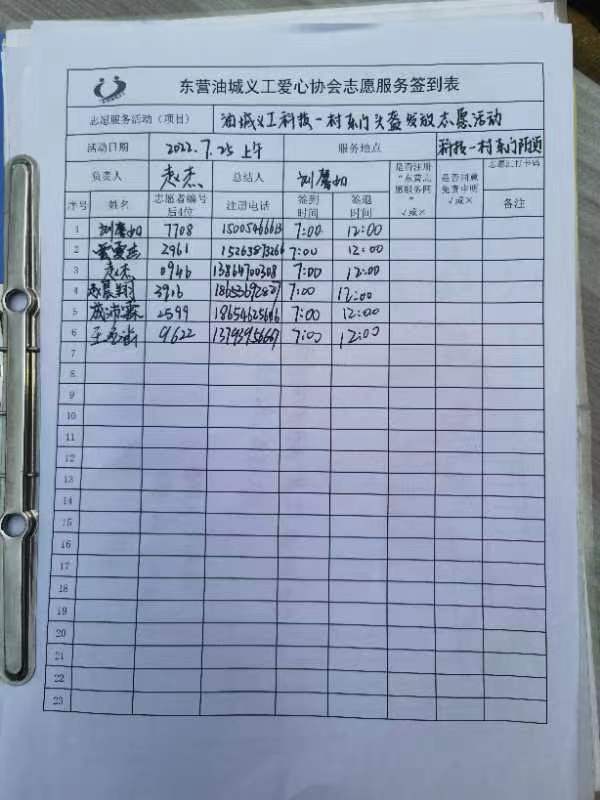 东营油城义工爱心协会志愿服务签到表
志愿服务活动（项目） 油城义工科技一村东门头盔发放志愿活动
活动日期 2022.7.25 上午 服务地点 科技一村东门附近
负责人 赵杰 总结人 刘馨如 是否注册“东营志愿服务网” √或× 是否同意免责申明 √或× 志愿汇打卡码
序号 姓名 志愿者编号后4位 注册电话 签到时间 签退时间 备注
1 刘馨如 7708 15005466613 7:00 12:00
2 2961 15263873266 7:00 12:00
3 赵杰 0946 13864700308 7:00 12:00
4 3916 7:00 12:00
5 2599 18654625686 7:00 12:00
6 9622 7:00 12:00
7
8
9
10
11
12
13
14
15
16
17
18
19
20
21
22
23